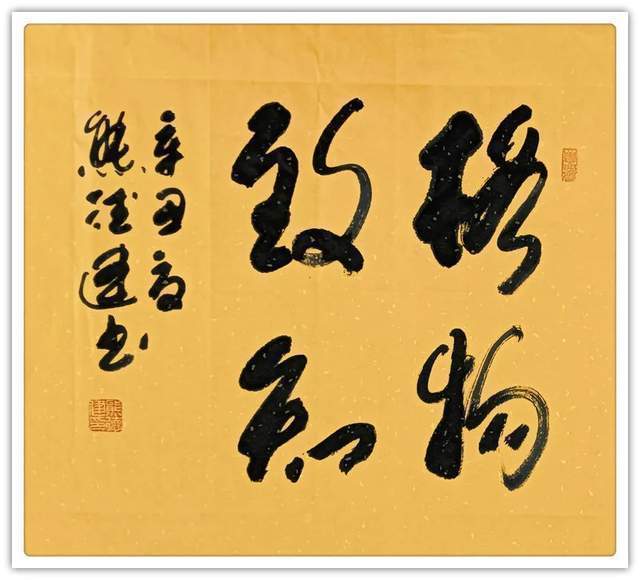 格物
致知
辛丑夏
熊德建书